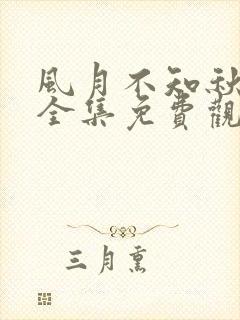 風月不知秋
全集免費觀
三月熏